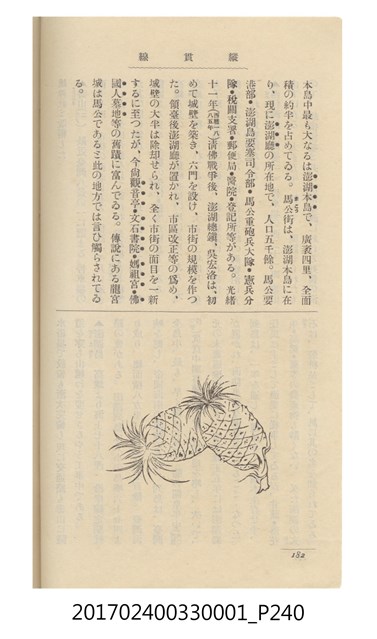 縱貫線
本島中最も大なるは澎湖本島で、廣袤四里、全面
積の約半を占めてゐる。馬公街は、澎湖本島に在
り、現に澎湖廳の所在地で、人口五千餘。馬公要
港部・澎湖島要塞司令部・馬公重砲兵大隊・憲兵分
隊・稅關支署・郵便局・醫院・登記所等がある。光緒
十一年(西曆一八八五年)清佛戰爭後、澎湖總鎭、吳宏洛は、初
めて城壁を築き、六門を設け、市街の規模を作つ
た。領臺後澎湖廳が置かれ、市區改正等の爲め、
城壁の大半は除却せられ、全く市街の面目を一新
するに至つたが、今尙觀音亭・文石書院・媽祖宮・佛
國人墓地等の舊蹟に富んでゐる。傳說にある龍宮
城は馬公であると此の地方では言ひ觸らされてゐ
る。
182
201702400330001_P240